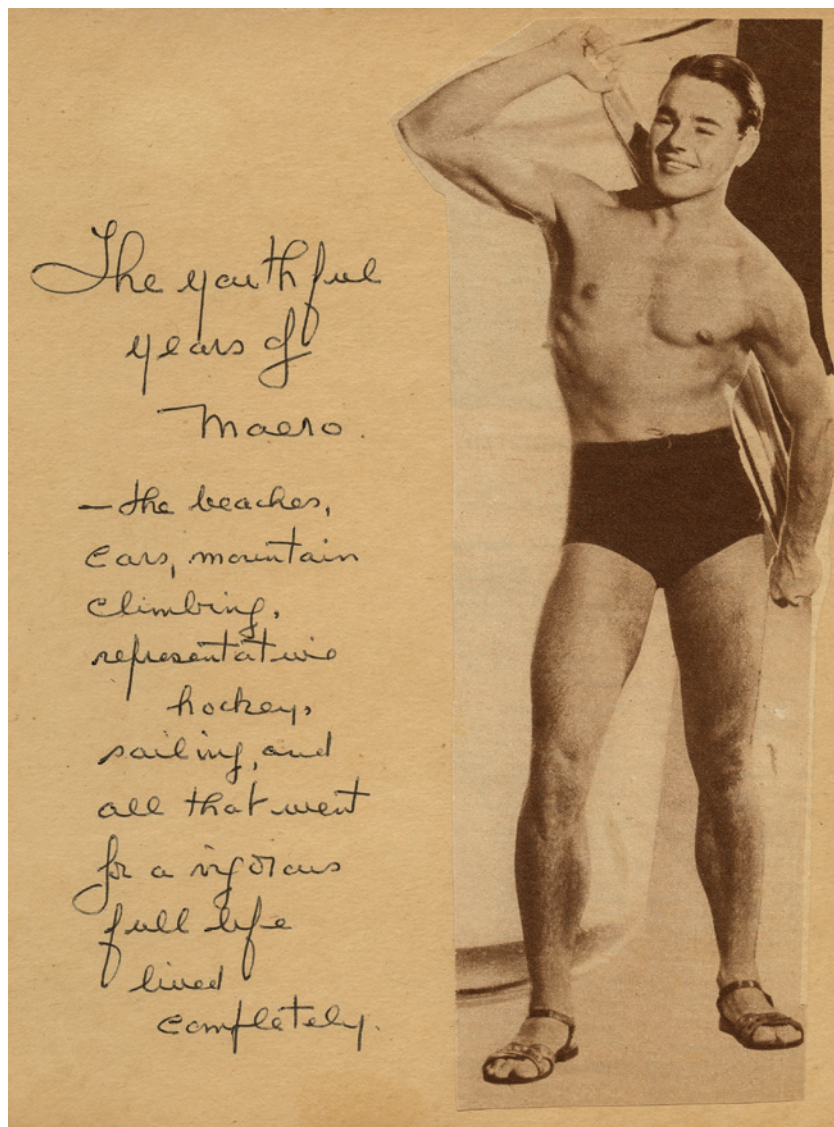 The youthful
years of
Maero.
— the beaches,
cars, mountain
climbing,
representative
hockey,
sailing, and
all that went
for a vigorous
full life
lived
completely.